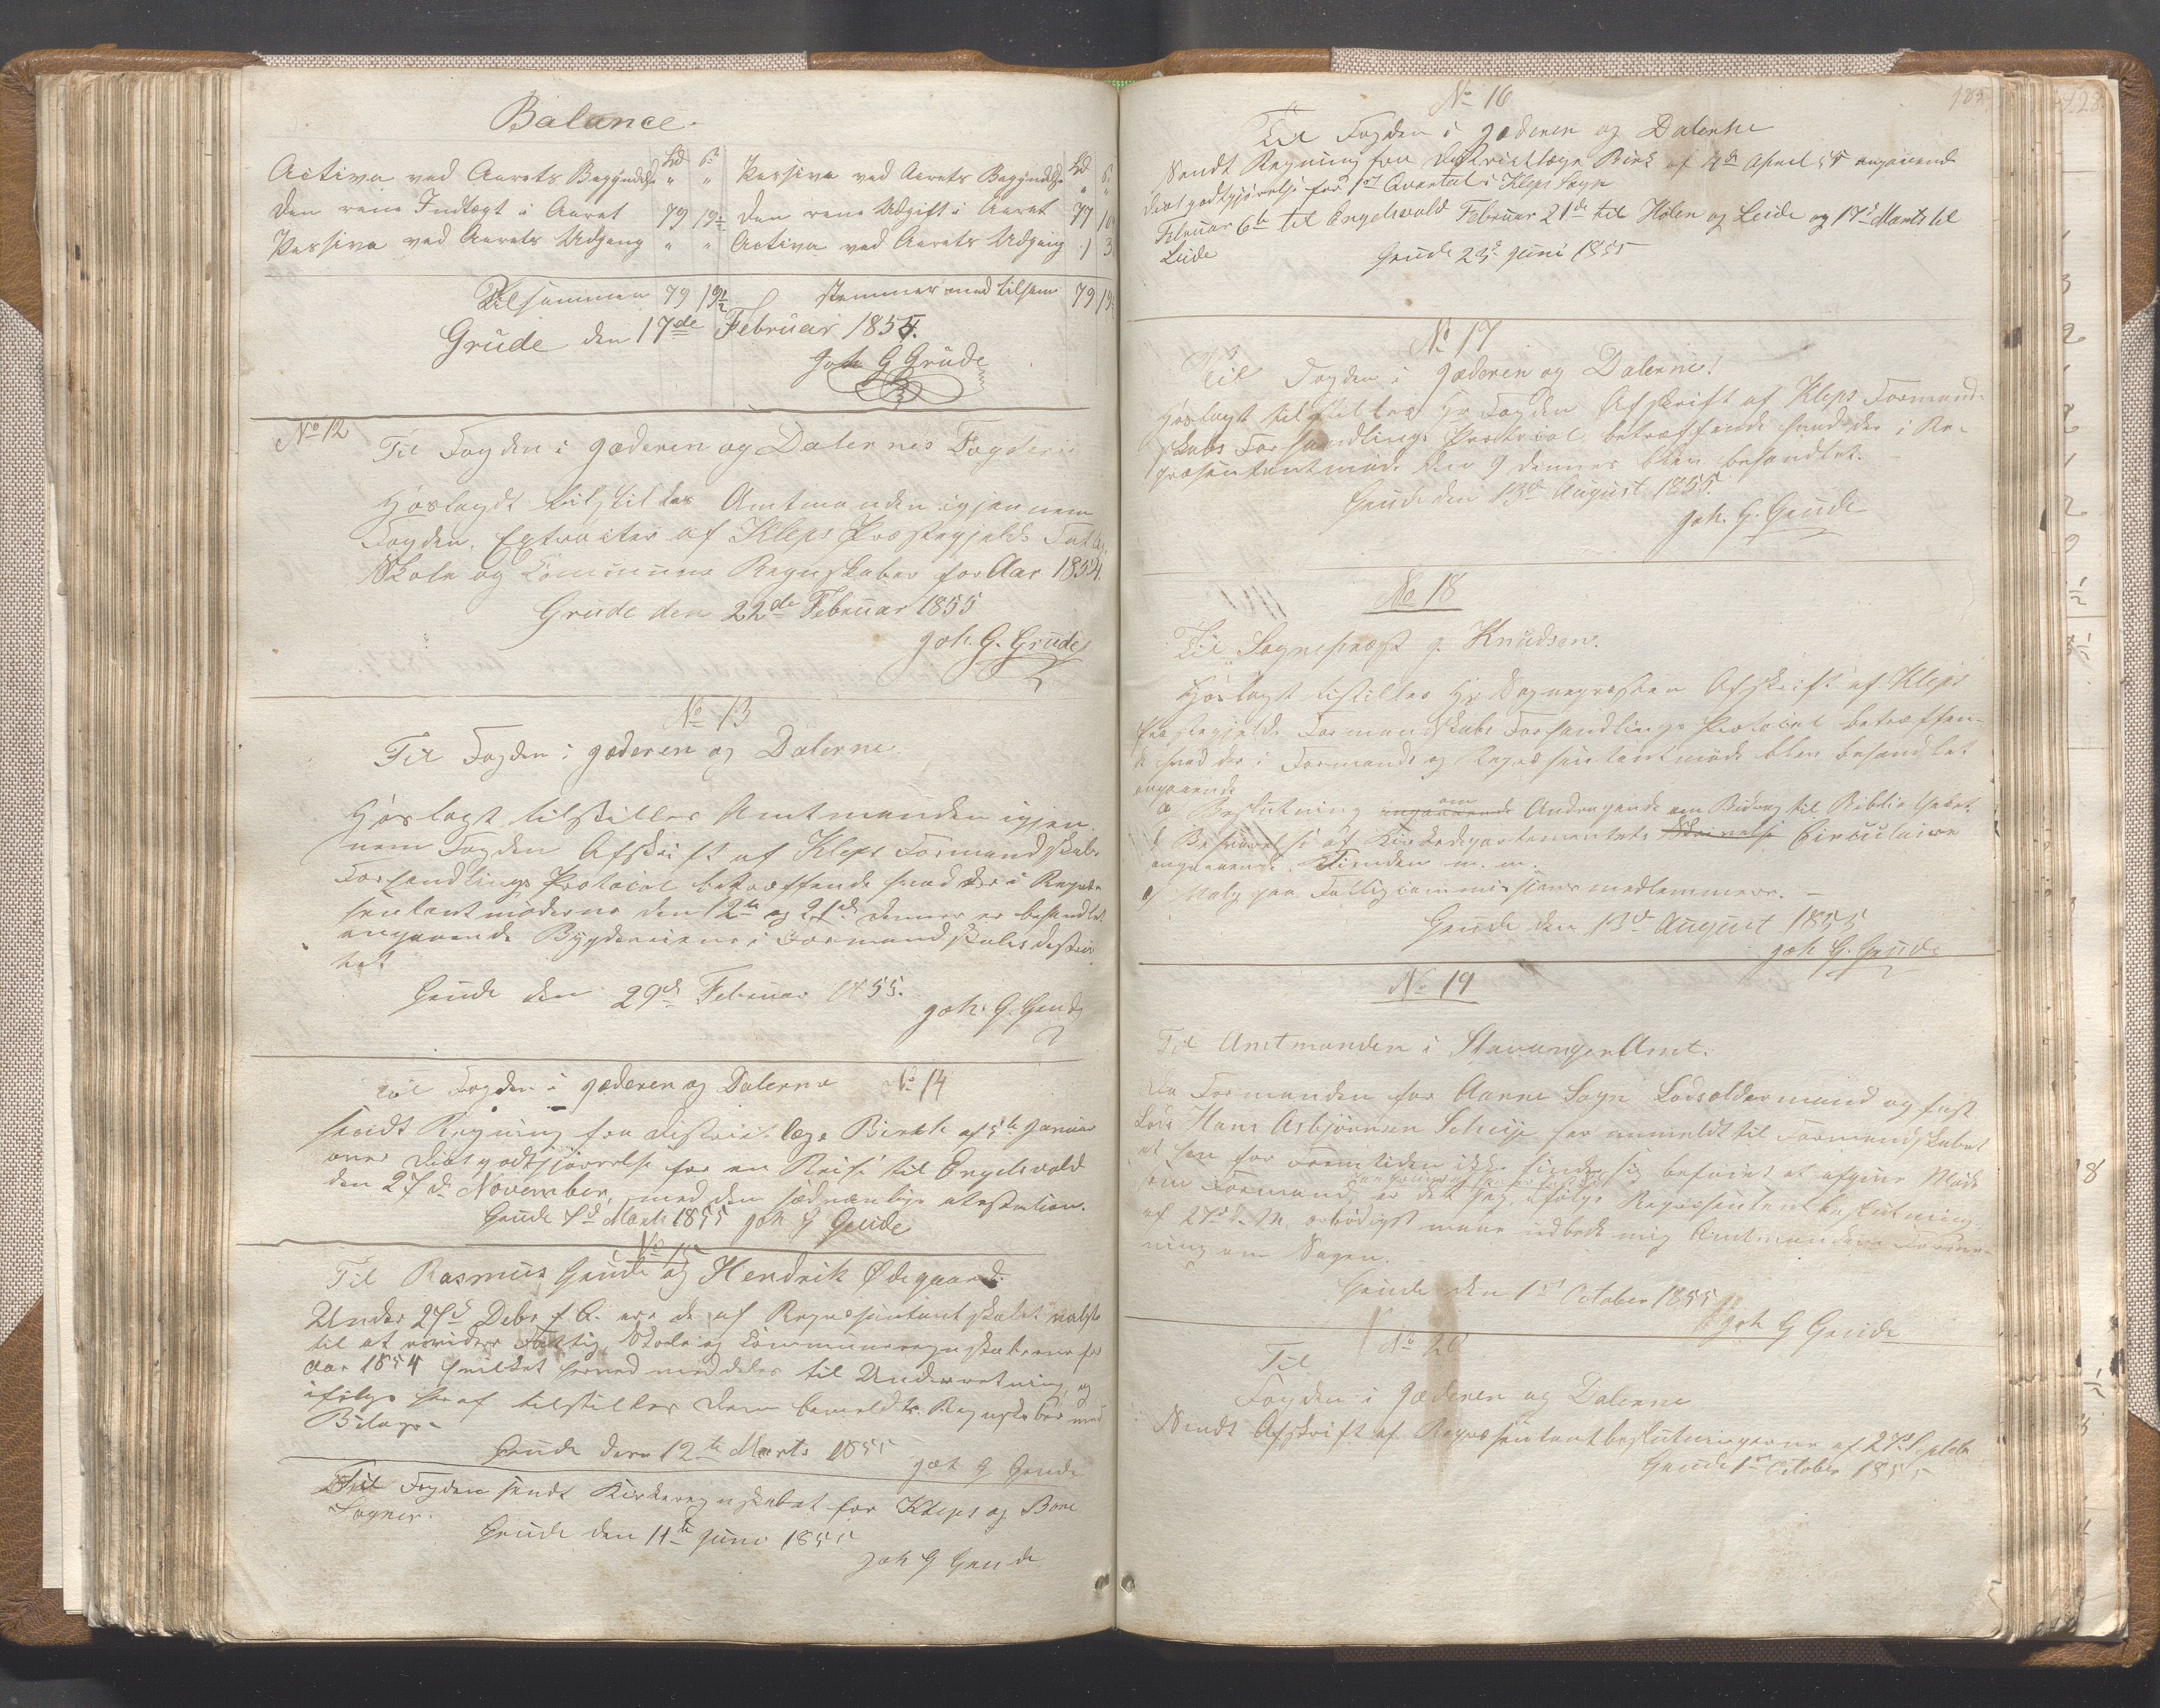 Balance.
Activa ved Aarets Begyndelse " " Passiva ved Aarets Begyndelse " "
Den rene Indtægt i Aaret 79 19½ Den rene Udgift i Aaret 77
Passiva ved Aarets Udgang " " Activa ved Aarets Udgang 1
Tilsammen 79 19½ stemmer med tilsam 79
Grude den 17de Februar 1855.
Joh G Grude
No 12
Til Fogden i Jæderen og Dalernes Fogderi
Hoslagdt tilstilles Amtmanden igjennem
Fogden, Extracter af Kleps Præstegjelds Fattig,
Skole og Communes Regnskaber for Aar 1854.
Grude den 22de Februar 1855
Joh. G. Grude
No 13
Til Fogden i Jæderen og Dalerne
Hoslagt tilstilles Amtmanden igjen
nem Fogden Afskrift af Kleps Formandskabs
Forhandlings Protocol betræffende hvad der i Repræ
sentantmøderne den 12te og 21de dennes er behandlet
angaaende Bygdeveiene i Formandskabsdistric
tet
Grude den 29de Februar 1855.
Joh. G. Grude
Til Fogden i Jæderen og Dalerne No 14
sendt Regning fra Districtslæge Birk af 5te Januar
over Diætgodtgjørelse for en Reise til Engelsvold
den 27de November, med den sædvanlige atestation.
Grude 7de Marts 1855 Joh G Grude
No 15
Til Rasmus Grude og Hendrik Ødegaard.
Under 27de Debr f. A. ere de af Repræsentantskabet valgte
til at revidere Fattig, Skole og Communeregnskaberne for
Aar 1854 hvilket herved meddeles til Underretning, og
ifølge heraf tilstilles Dem bemeldte Regnskaber med
Bilage.
Grude den 12te Marts 1855
Joh G Grude
Til Fogden sendt Kirkeregnskabet for Kleps og Bore
Sogner.
Grude den 11te Juni 1855
Joh G Grude
No 16
Til Fogden i Jæderen og Dalerne
Sendt Regning fra Districtlæge Birk af 4de April 55 angaaende
Diætgodtgjørelse for 1ste Qvartal i Kleps Sogn
Februar 6te til Engelsvold Februar 21de til Holen og Leide og 17de Marts til
Leide Grude 23de Juni 1855
No 17
Til Fogden i Jæderen og Dalerne!
Hoslagt tilstilles Hr Fogden Afskrift af Kleps Formand-
skabs Forhandlings Protocol betræffende hvad der i Re-
præsentantmøde den 9 dennes blev behandlet.
Grude den 13de August 1855.
Joh. G. Grude
No 18
Til Sognepræst J. Knudsen.
Hoslagt tilstilles Hr. Sognepræsten Afskrift af Kleps
Præstegjelds Formandskabs Forhandlings Protocol betræffen-
de hvad der i Formands og Repræsentantmøde blev behandlet
angaaende
a Beslutning angaaende om Andragende om Bidrag til Bibliothek
b Besvarelse af Kirkedepartementets Skrivelse Circulaire
angaaende Tienden m. m.
c/ Valg paa Fattigcommissions medlemmer. –
Grude den 13de August 1855
Joh G. Grude
No 19
Til Amtmanden i Stavanger Amt.
Da Formanden for Aarre Sogn Lodsoldermand og fast
Lods Hans Asbjørnsen Scheije har anmeldt til Formandskabet
at han for Fremtiden ikke finder sig beføiet at afgive Møde
som Formand, er det jeg, ifølge Repræsentantbeslutning
af 27de d. M. ærbødigst maae udbede mig Amtmandens Forme-
ning om Sagen.
Grude den 1ste October 1855
Joh G Grude
No 20
Til
Fogden i Jæderen og Dalerne
Sendt Afskrift af Repræsentantbeslutningerne af 27de Septbr
Grude 1ste October 1855